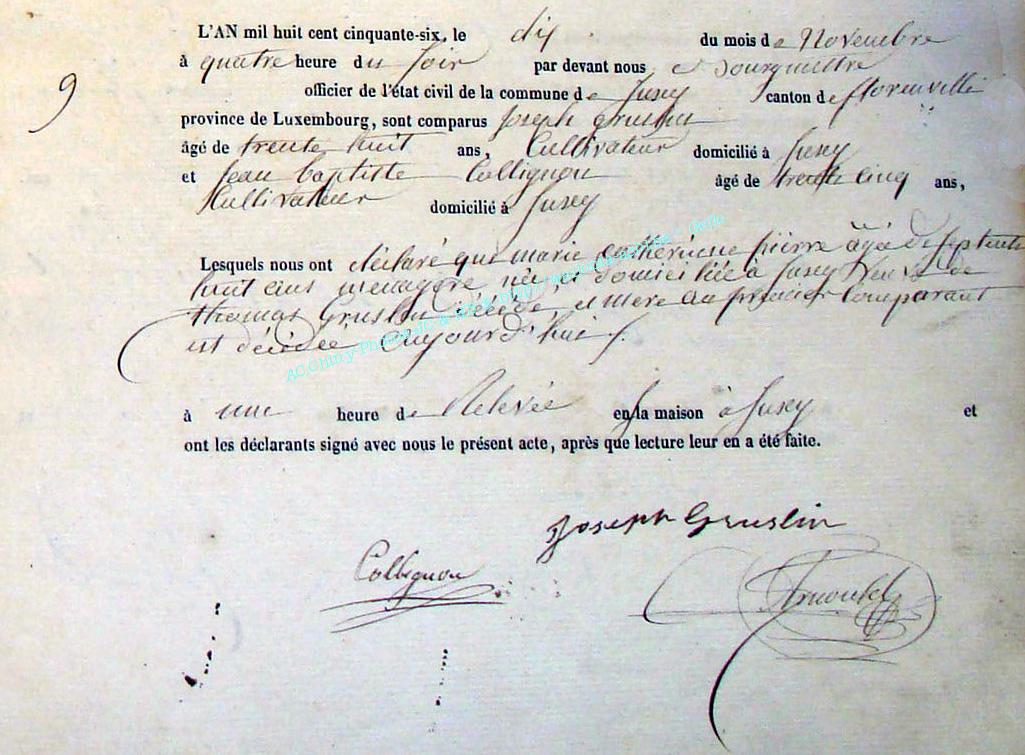 L'AN mil huit cent cinquante-six, le dix du mois de Novembre
9
à quatre heure du soir par devant nous Bourgmestre
officier de l'état civil de la commune de Jusey canton de florenville
province de Luxembourg, sont comparus Joseph Gruslin
âgé de trente huit ans, Cultivateur domicilié à Jusey
et Jean baptiste Collignon âgé de trente cinq ans,
Cultivateur domicilié à Jusey
Lesquels nous ont déclaré que marie catherine pierre âgée de septante
huit ans menagere née et domiciliée à Jusey veuve de
thomas Gruslin décédé, et mere au premier Comparant
est décédée aujourd'hui
à une heure de Relevée en la maison à Jusey et
ont les déclarants signé avec nous le présent acte, après que lecture leur en a été faite.
Joseph Gruslin
Collignon